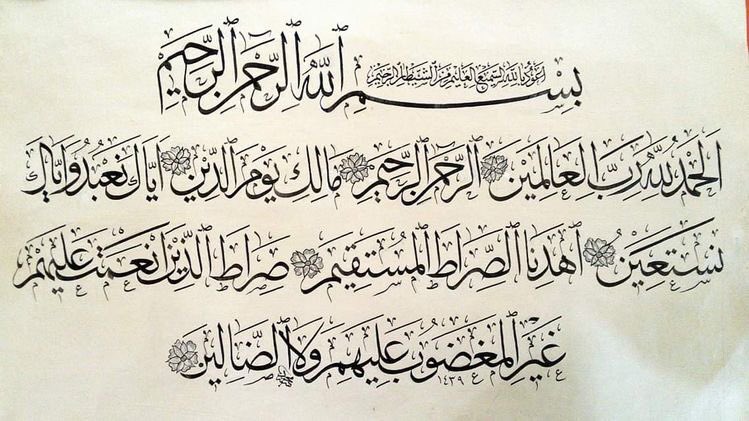 بسم الله الرحمن الرحيم
أعوذ بالله السميع العليم من الشيطان الرجيم
الحمد لله رب العالمين الرحمن الرحيم مالك يوم الدين اياك نعبد واياك
نستعين اهدنا الصراط المستقيم صراط الذين انعمت عليهم
غير المغضوب عليهم ولا الضالين
١٤٣٩